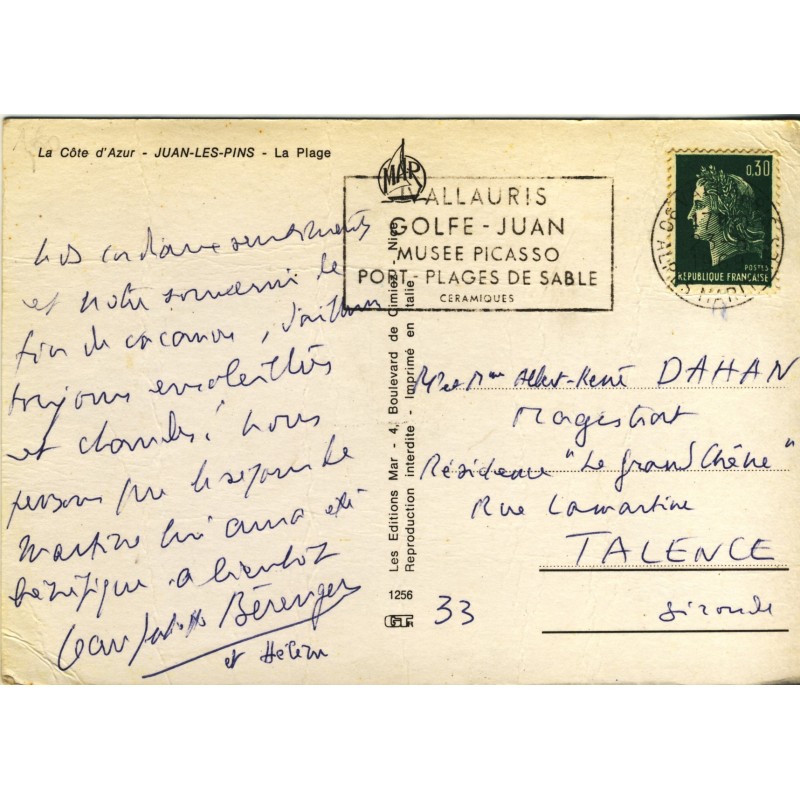 La Côte d'Azur - JUAN-LES-PINS - La Plage
MAR
VALLAURIS
GOLFE - JUAN
MUSEE PICASSO
PORT - PLAGES DE SABLE
CERAMIQUES
0,30
POSTES
RÉPUBLIQUE FRANÇAISE
Nos cordiaux sentiments
et notre souvenir de
fin de vacances, d'ailleurs
toujours ensoleillées
et chaudes! Nous
pensons que le séjour de
Martine lui aura été
bénéfique. a bientôt
Bérenger
et Hélène
Les Editions Mar - 4, Boulevard de Cimiez - Nice
Reproduction interdite - Imprimé en Italie
1256
Mr et Mme Albert-René DAHAN
Magistrat
Résidence "Le grand Chêne"
Rue Lamartine
TALENCE
33
Gironde